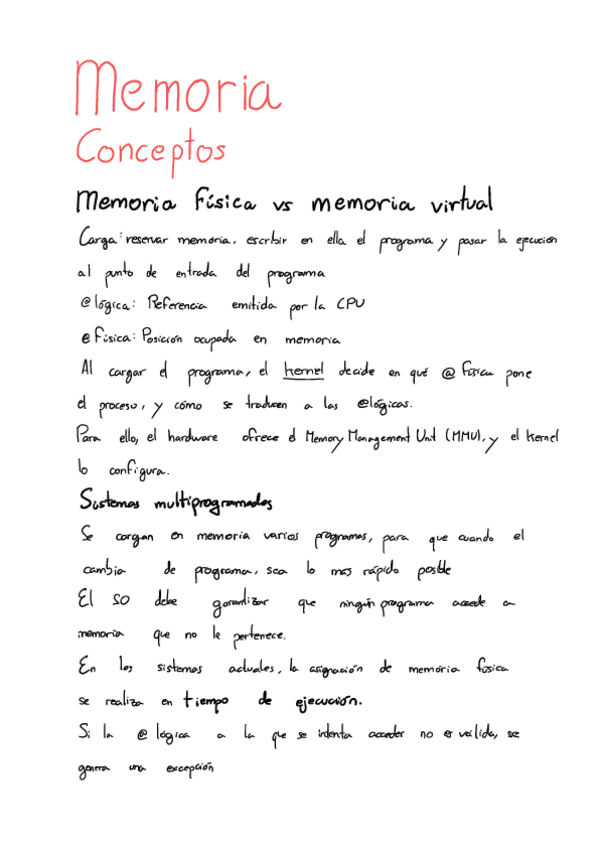 Memoria
Conceptos
Memoria Física vs memoria virtual
Carga: reservar memoria, escribir en ella el programa y pasar la ejecución
al punto de entrada del programa
@lógica: Referencia emitida por la CPU
@Física: Posición ocupada en memoria
Al cargar el programa, el kernel decide en qué @ Física pone
el proceso, y cómo se traducen a las @lógicas.
Para ello, el hardware ofrece el Memory Management Unit (MMU), y el Kernel
lo configura.
Sistemas multiprogramados
Se cargan en memoria varios programas, para que cuando el
cambia de programa, sea lo mas rápido posible
El SO debe garantizar que ningún programa accede a
memoria que no le pertenece.
En los sistemas actuales, la asignación de memoria física
se realiza en tiempo de ejecución.
Si la @ lógica a la que se intenta acceder no es válida, se
genera una excepción